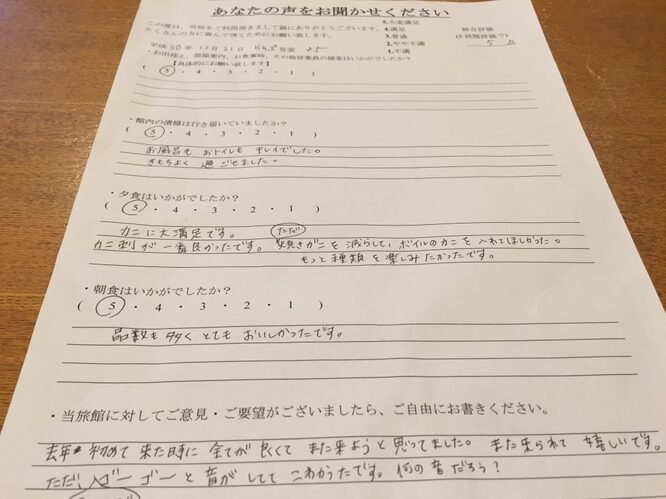 あなたの声をお聞かせください
この度は、当館をご利用頂きまして誠にありがとうございます。
たくさんの方に喜んで頂くためにお願い致します。
5.大変満足
4.満足
3.普通
2.やや不満
1.不満
総合評価
(5段階評価で)
5 点
平成30年 11月21日 号室
・お出迎え、部屋案内、お食事時、その他従業員の接客はいかがでしたか？
【具体的にお願い致します】
( 5 ・ 4 ・ 3 ・ 2 ・ 1 )
・館内の清掃は行き届いていましたか？
( 5 ・ 4 ・ 3 ・ 2 ・ 1 )
お風呂も おトイレも キレイでした。
きもちよく 過ごせました。
・夕食はいかがでしたか？
( 5 ・ 4 ・ 3 ・ 2 ・ 1 )
カニに大満足です。 ただ
カニ刺が一番良かったです。 焼きガニを減らして、ボイルのカニを入れてほしかった。
もっと種類を楽しみたかったです。
・朝食はいかがでしたか？
( 5 ・ 4 ・ 3 ・ 2 ・ 1 )
品数も多く とても おいしかったです。
・当旅館に対してご意見・ご要望がございましたら、ご自由にお書きください。
去年 初めて 来た時に 全てが 良くて また来ようと 思ってました。 また来られて 嬉しいです。
ただ、ゴーゴーと音がしてて こわかったです。何の音だろう？